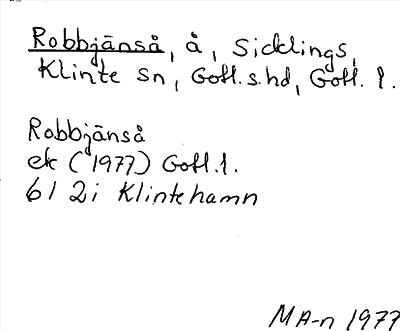 Robbjänså, å, Sicklings,
Klinte sn, Gotl. s. hd, Gotl. l.
Robbjänså
ek (1977) Gotl. l.
6I 2i Klintehamn
MA-n 1977